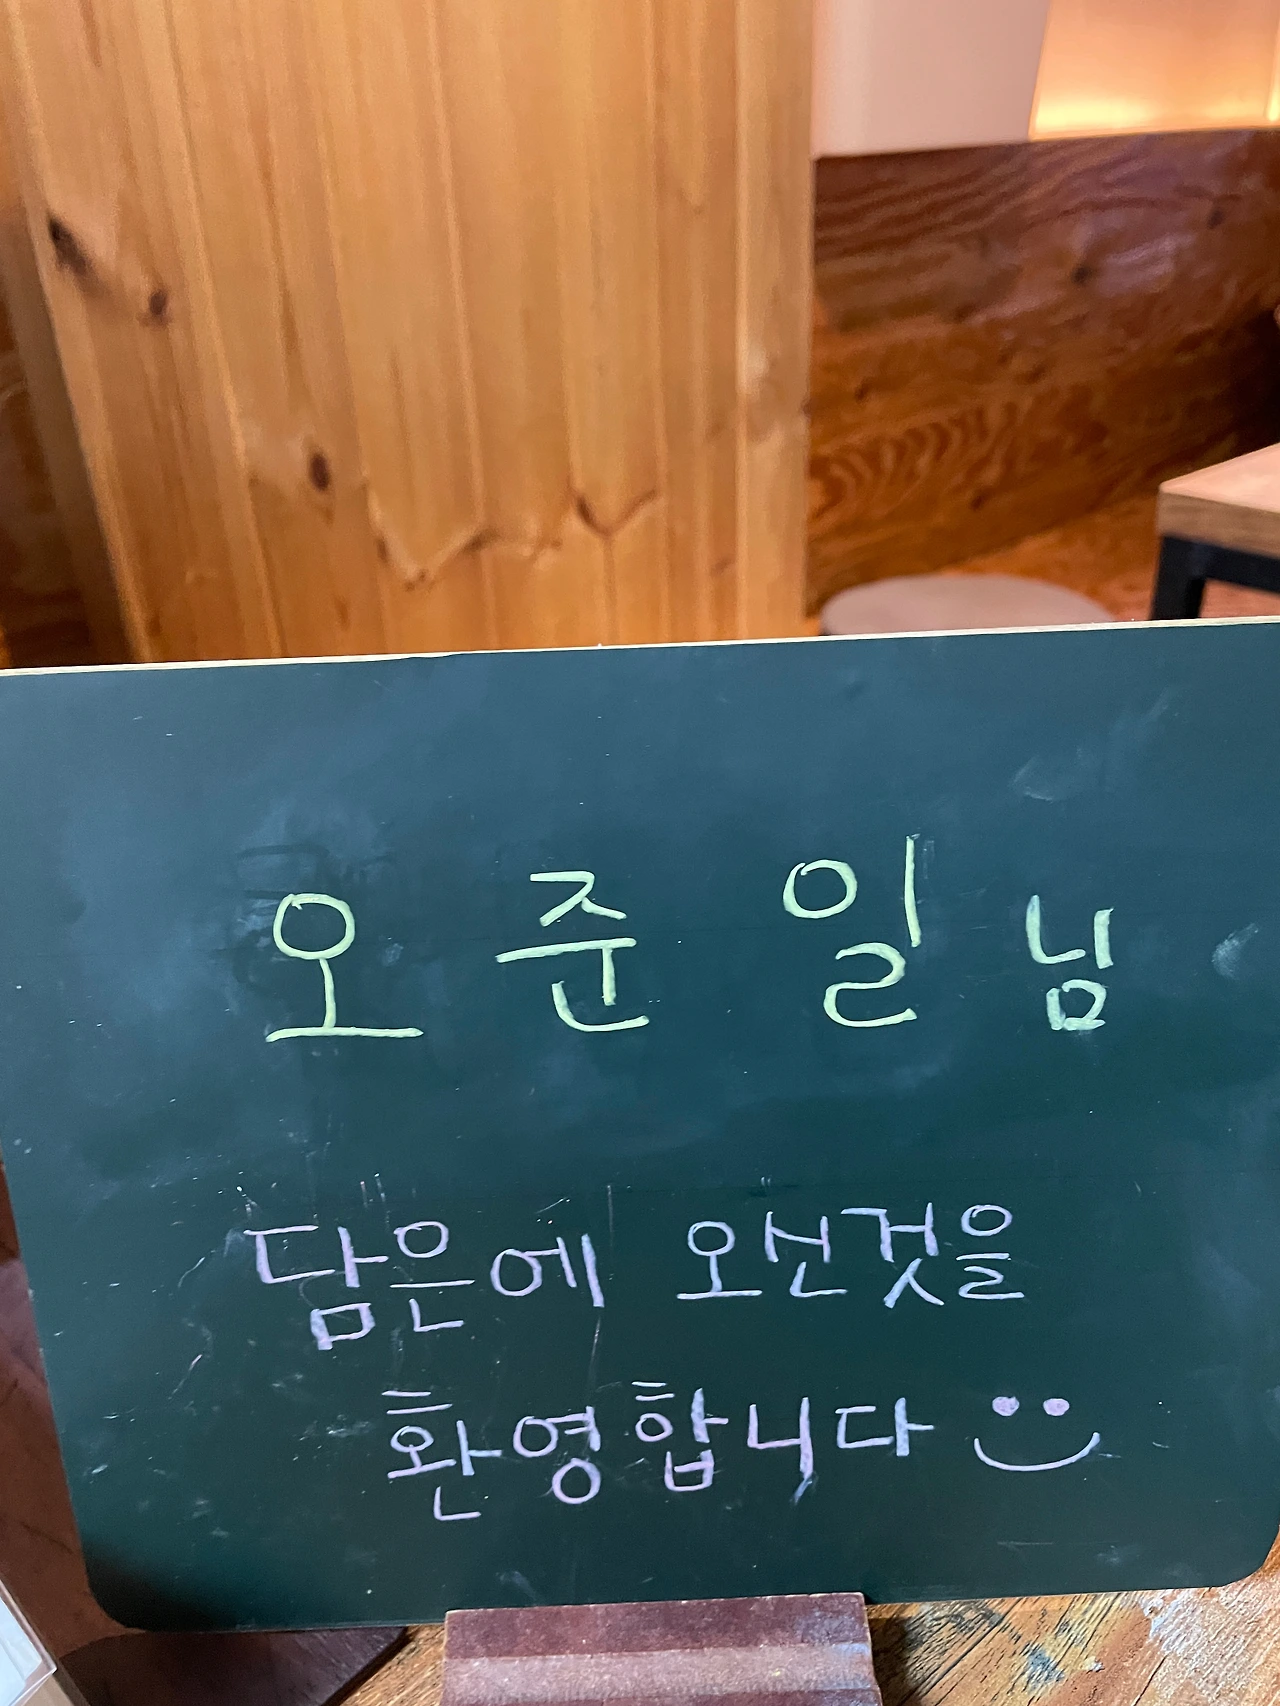 오준일님
담은에 오신것을
환영합니다